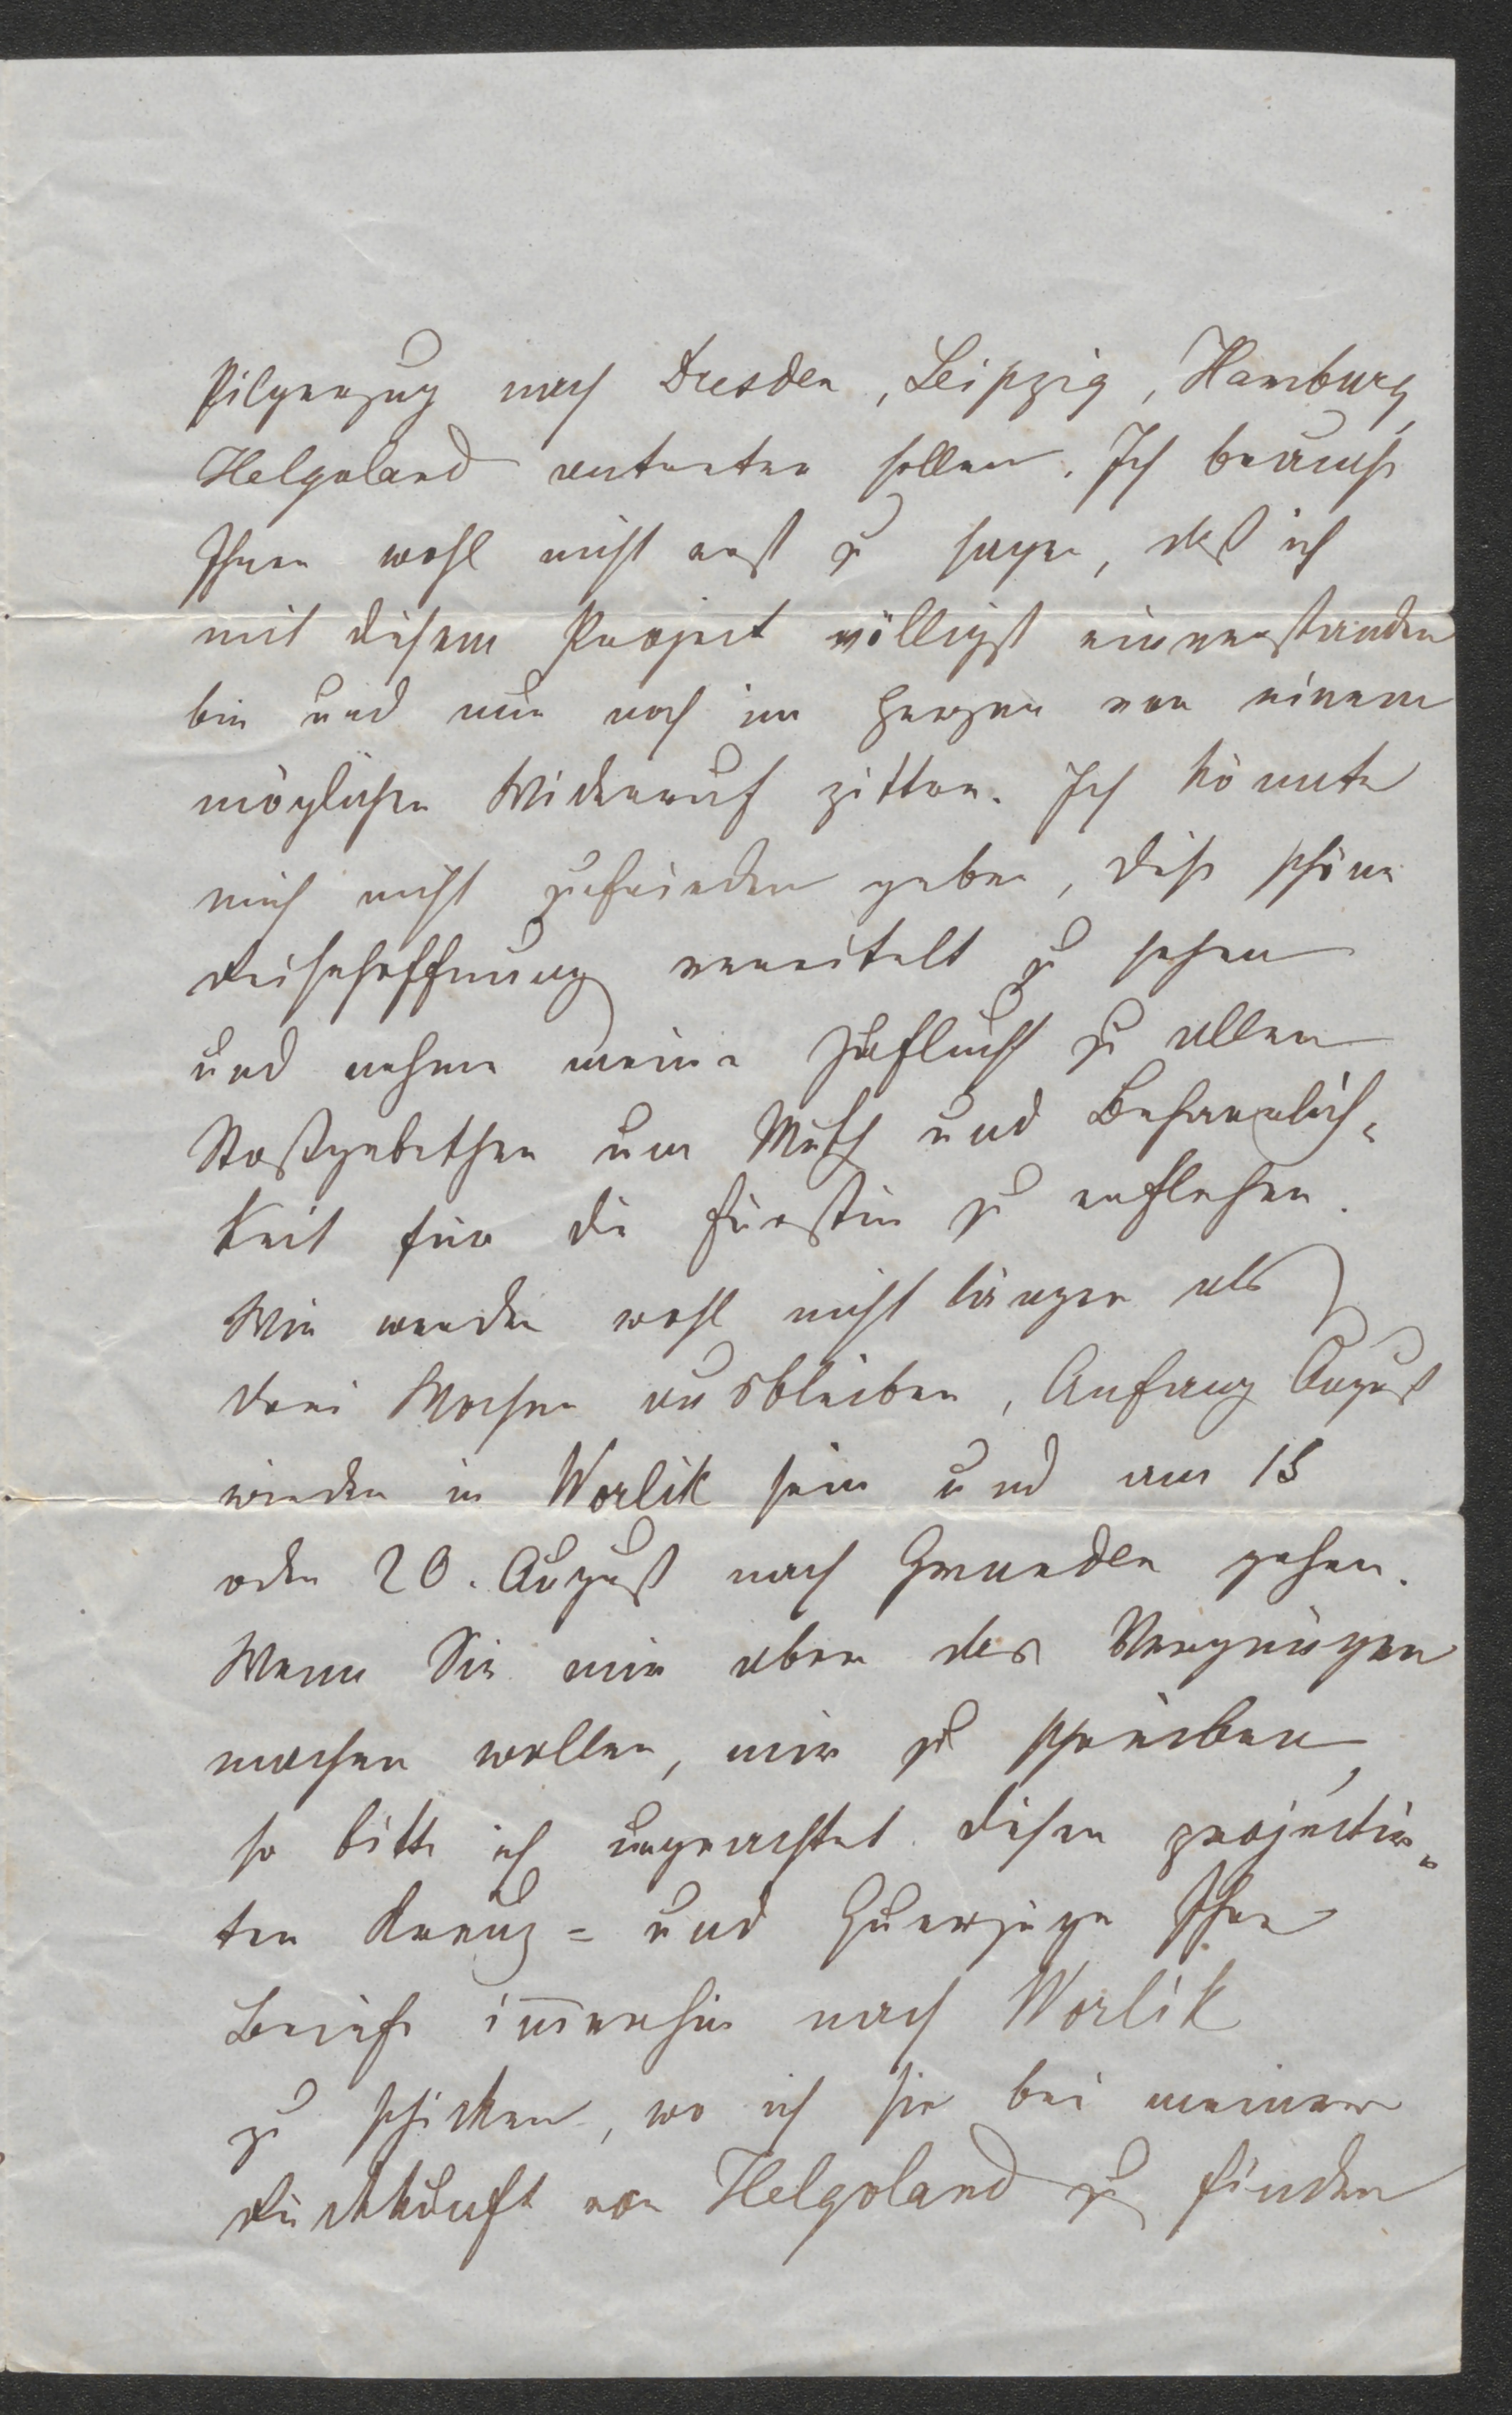 Pilgerzug nach Dresden, Leipzig, Hamburg,
Helgoland antreten sollen. Ich brauche
Ihnen wohl nicht erst zu sagen, daß ich
mit diesem Project völligst einverstanden
bin und nur noch im Herzen vor einem
möglichen Widerruf zittere. Ich könnte
mich nicht zufrieden geben, diese schöne
Reisehoffnung vereitelt zu sehen
und nehme meine Zuflucht zu allen
Stoßgebethen um Muth und Beharrlich-
keit für die Fürstin zu erflehen.
Wir werden wohl nicht länger als
drei Wochen ausbleiben, Anfang August
wieder in Worlik sein und am 15
oder 20. August nach Gmunden gehen.
Wenn Sie mir aber das Vergnügen
machen wollen, mir zu schreiben,
so bitte ich ungeachtet dieser projectir-
ten Kreuz- und Querzüge Ihre
Briefe im̅erhin nach Worlik
zu schicken, wo ich sie bei meiner
Rückkunft von Helgoland zu finden